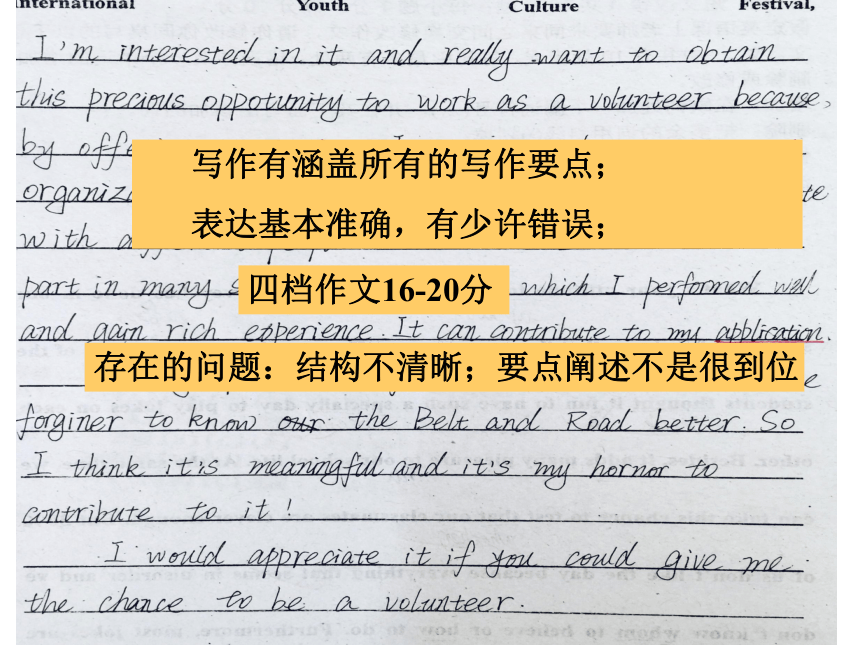 International Youth Culture Festival,
I'm interested in it and really want to obtain
this precious oppotunity to work as a volunteer because,
by
写作有涵盖所有的写作要点；
表达基本准确，有少许错误；
with
part in many
四档作文16-20分
which I performed well
and gain rich experience. It can contribute to my application.
存在的问题：结构不清晰；要点阐述不是很到位
forginer to know our the Belt and Road better. So
I think it is meaningful and it's my hornor to
contribute to it!
I would appreciate it if you could give me
the chance to be a volunteer.